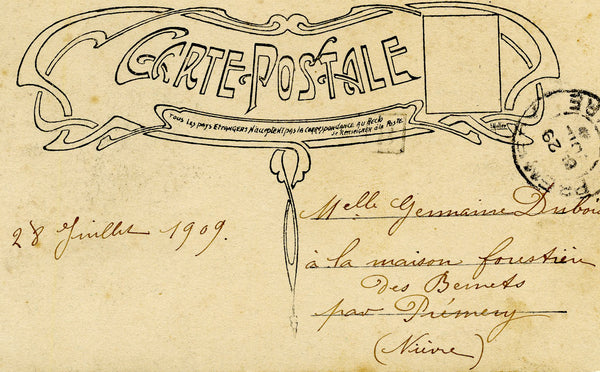 CARTE POSTALE
TOUS LES PAYS ETRANGERS N'ACCEPTENT PAS LA CORRESPONDANCE AU RECTO
SE RENSEIGNER A LA POSTE
28 Juillet 1909.
Melle Germaine Dubois
à la maison foustière
des Bernets
par Prémery
(Nièvre)
29